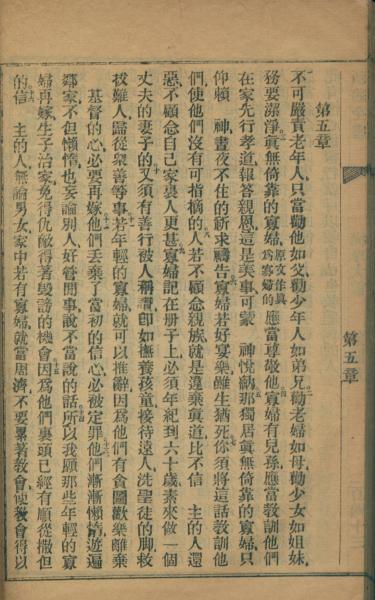 第五章
不可嚴責老年人只當勸他如父勸少年人如弟兄勸老婦如母勸少女如姐妹
務要潔淨眞無倚靠的寡婦原文作眞爲寡婦的應當尊敬他寡婦有兒孫應當敎訓他們
在家先行孝道報答親恩這是美事可蒙 神悅納那獨居眞無倚靠的寡婦只
仰賴 神晝夜不住的祈求禱告寡婦若好宴樂雖生猶死你須將這話敎訓他
們使他們沒有可指摘的人若不顧念親族就是違棄眞道比不信 主的人還
惡不顧念自己家裏人更甚寡婦記在册子上必須年紀到六十歲素來做一個
丈夫的妻子的又須有善行被人稱讚卽如撫養孩童接待遠人洗聖徒的脚救
拔難人歸從衆善等事若年輕的寡婦就可以推辭因爲他們有貪圖歡樂離棄
基督的心必要再嫁他們丟棄了當初的信心必被定罪他們漸漸懶惰遊遍
鄰家不但懶惰也妄論別人好管閒事說不當說的話所以我願那些年輕的寡
婦再嫁生子治家免得仇敵得著毀謗的機會因爲他們裏頭已經有順從撒但
的信 主的人無論男女家中若有寡婦就當周濟不要累著敎會使敎會得以
第五章